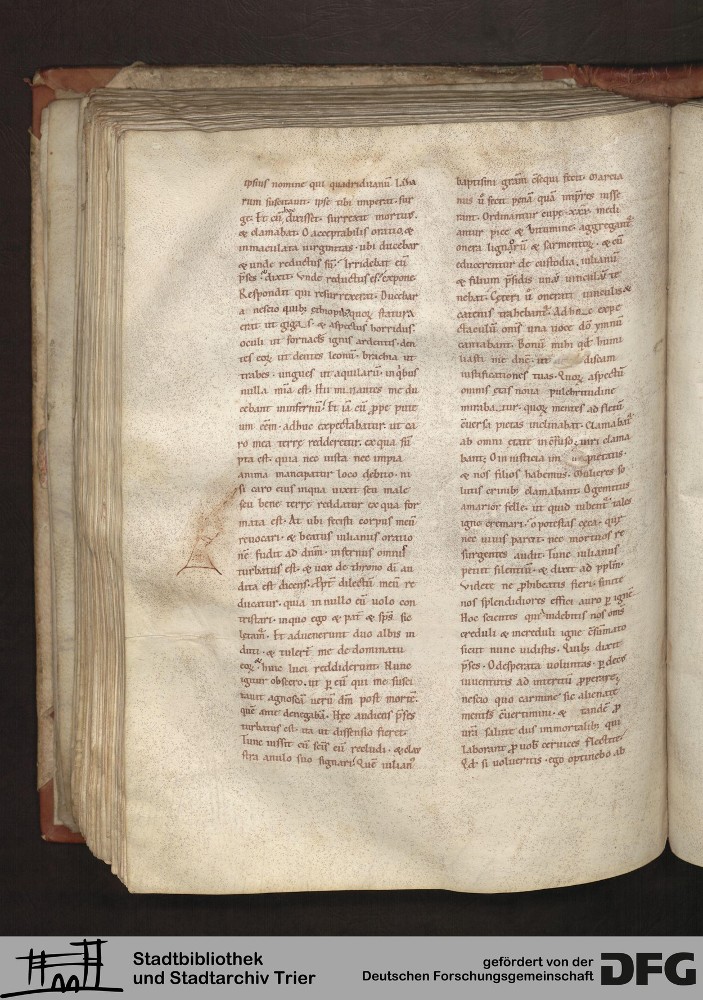 ipsius nomine qui quadriduanū Laza
rum suscitauit. ipse tibi imperat. sur
ge. Et cū hoc dixisset. surrexit mortuus.
& clamabat. O acceptabilis oratio. &
inmaculata uirginitas. ubi ducebar
& unde reductus sū. Irridebat eū
p̄ses & dixit. Vnde reductus es? expone
Respondit qui resurrexerat. Ducebar
a nescio quib; ethiopib; quoꝝ statura
erat ut gigas. & aspectus horridus.
oculi ut fornaces ignis ardentis. den
tes eoꝝ ut dentes leonū. brachia ut
trabes. ungues ut aquilarū. in q̇bus
nulla mia est. Hii minantes me du
cebant in infernū. Et iā cū ꝓpe pute
um eēm. adhuc expectabatur. ut ca
ro mea terrę redderetur. ex qua sū
pta est. quia nec iusta nec impia
anima mancipatur loco debito. ni
si caro eius in qua uixit seu male
seu bene terrę reddatur ex qua for
mata est. At ubi fecisti corpus meū
reuocari. & beatus iulianus oratio
nē fudit ad dn̄m. infernus omnis
turbatus est. & uox de throno di au
dita est dicens. Ꝓpt̄ dilectū meū re
ducatur. quia in nullo eū uolo con
tristari. in quo ego & pat̄ & sp̄s sc̄s
letam̄. Et aduenerunt duo albis in
duti. & tulert̄ me de dominatu
eoꝝ & huic luci reddiderunt. Nunc
igitur obsecro. ut p eū qui me susci
tauit agnoscā uerū dm̄ post mortē.
quē ante denegabā. Hęc audiens p̄ses
turbatus est. ita ut dissensio fieret.
Tunc iussit eū scī̄s eū recludi. & clau
stra anulo suo signari. Quē iulian᷒
baptismi grām c̄sequi fecit. Marcia
nus ū fecit penā quā imp̄res iusse
rant. Ordinantur cupę .xxx. medi
antur pice & bitumine. aggregant̄
onera lignorū & sarmentoꝝ. & cū
educerentur de custodia. iulianū
& filium p̄sidis unū uinculū te
nebat. Ceteri ū onerati uinculis &
catenis trahebant̄. Ad hanc expe
ctaculū om̄s una uoce dō ymnū
cantabant. Bonū mihi qd̄ humi
liasti me dn̄e. ut discam
iustificationes tuas. Quoꝝ aspectū
omnis etas noua pulchritudine
mirabatur. quoꝝ mentes ad fletū
c̄uersa pietas inclinabat. clamabat̄
ab omni etate in c̄fuso. uiri clama
bant; O iniusticia impietatis.
& nos filios habemus. Mulieres so
lutis crinib; clamabant. O gemitus
amarior felle. ut quid iubent̄ tales
igne cremari. o potestas cęca. quę
nec uiuis parcit. nec mortuos re
surgentes audit. Tunc iulianus
petiit silentiū. & dixit ad pplm̄.
Videte ne ꝓhibeatis fieri. sinite
nos splendidiores effici auro p ignē
Hoc scientes quia uidebitis nos om̄s
creduli & increduli igne c̄sūmato
sicut nunc uidistis. Quib; dixit
p̄ses. O desperata uoluntas. p dec᷒
iuuentutis ad interitū ꝓperare;
nescio quo carmine sic alienatę
mentes c̄uertimini. & tandē ꝓ
urā salute diis immortalib; qui
laborant ꝓ uob̄ ceruices flectite.
Qd̄ si uolueritis. ego optinebo ab
Stadtbibliothek
und Stadtarchiv Trier
gefördert von der
Deutschen Forschungsgemeinschaft
DFG